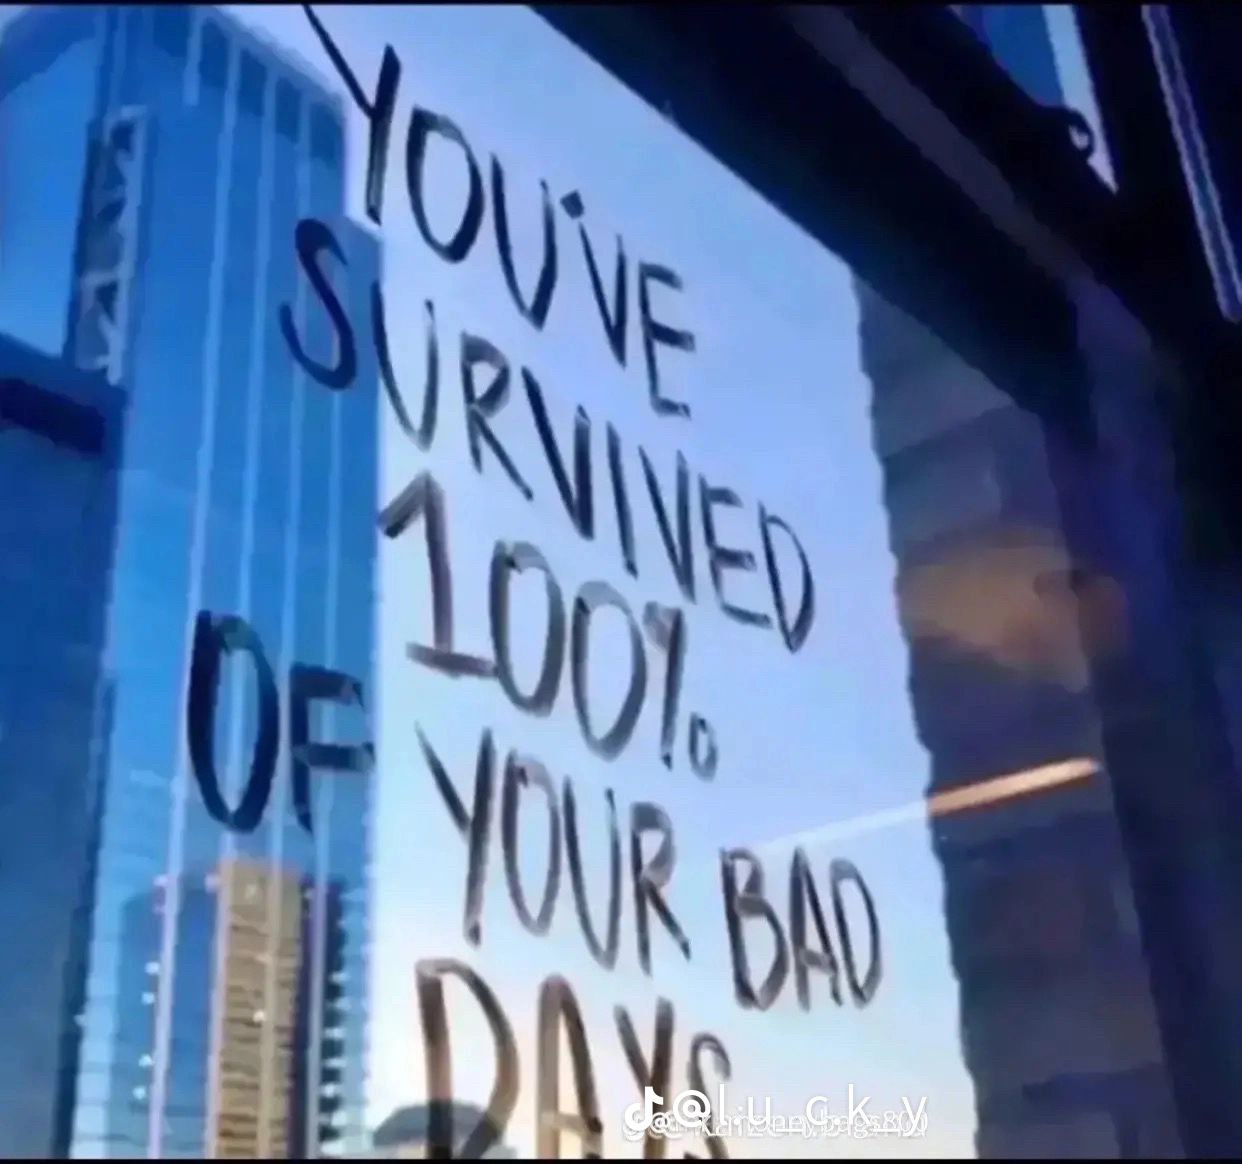 YOU'VE
SURVIVED
100%
OF
YOUR BAD
DAYS
@l.u_c.k_y